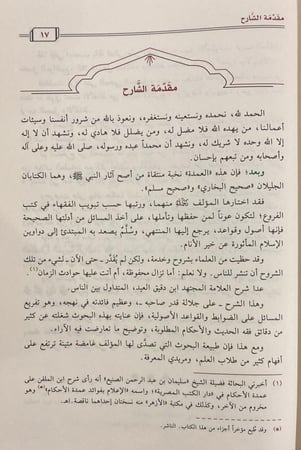 مقدّمة الشّارح
١٧
مقدّمة الشّارح
الحمد لله، نحمده ونستعينه ونستغفره، ونعوذ بالله من شرور أنفسنا وسيئات
أعمالنا، من يهده الله فلا مضل له، ومن يضلل فلا هادي له، ونشهد أن لا إله
إلا الله وحده لا شريك له، ونشهد أن محمداً عبده ورسوله، صلى الله عليه وعلى آله
وأصحابه ومن تبعهم بإحسان.
وبعد؛ فإن هذه «العمدة» نخبة منتقاة من أصح آثار النبي ﷺ، وهما الكتابان
الجليلان «صحيح البخاري» و«صحيح مسلم».
فقد اختارها المؤلف منهما، ورتبها حسب تبويب الفقهاء في كتب
الفروع؛ لتكون عوناً لمن حفظها وتأملها، على أخذ المسائل من أدلتها الصحيحة
فإنها أصول وقواعد، يرجع إليها المنتهي، وسُلَّم يصعد به المبتدئ إلى دواوين
الإسلام المأثورة عن خير الأنام.
وقد حظيت من العلماء بشروح وخدمة، ولكن لم يُقدَّر ـ حتى الآن ـ لشيء من تلك
الشروح أن تنشر للناس. ولا نعلم: أما تزال محفوظة، أم أتت عليها حوادث الزمان(١).
عدا شرح العلامة المجتهد ابن دقيق العيد، المتداول بين الناس.
وهذا الشرح ـ على جلالة قدر صاحبه ـ، وعظيم فائدته في نهجه، وهو تفريع
المسائل على الضوابط والقواعد الأصولية، فإن عنايته بهذه البحوث شغلته عن كثير
من دقائق فقه الحديث والأحكام المطلوبة، وتوضيح ما تعارضت فيه الآراء.
ومع هذا فإن طبيعة البحوث التي تصدَّى لها المؤلف غامضة متينة ترتفع على
أفهام كثير من طلاب العلم، ومريدي المعرفة.
(١) أخبرني البحاثة فضيلة الشيخ «سليمان بن عبد الرحمن الصنيع» أنه رأى شرح ابن الملقن على
عمدة الأحكام في «دار الكتب المصرية»، واسمه «الإعلام بفوائد عمدة الأحكام»(*) وهو
مخروم من الآخر، وكذلك في مكتبة «الأزهر» منه نسختان إحداهما ناقصة. اهـ.
(*) وقد طُبع مؤخراً أجزاء من هذا الكتاب. الناشر.